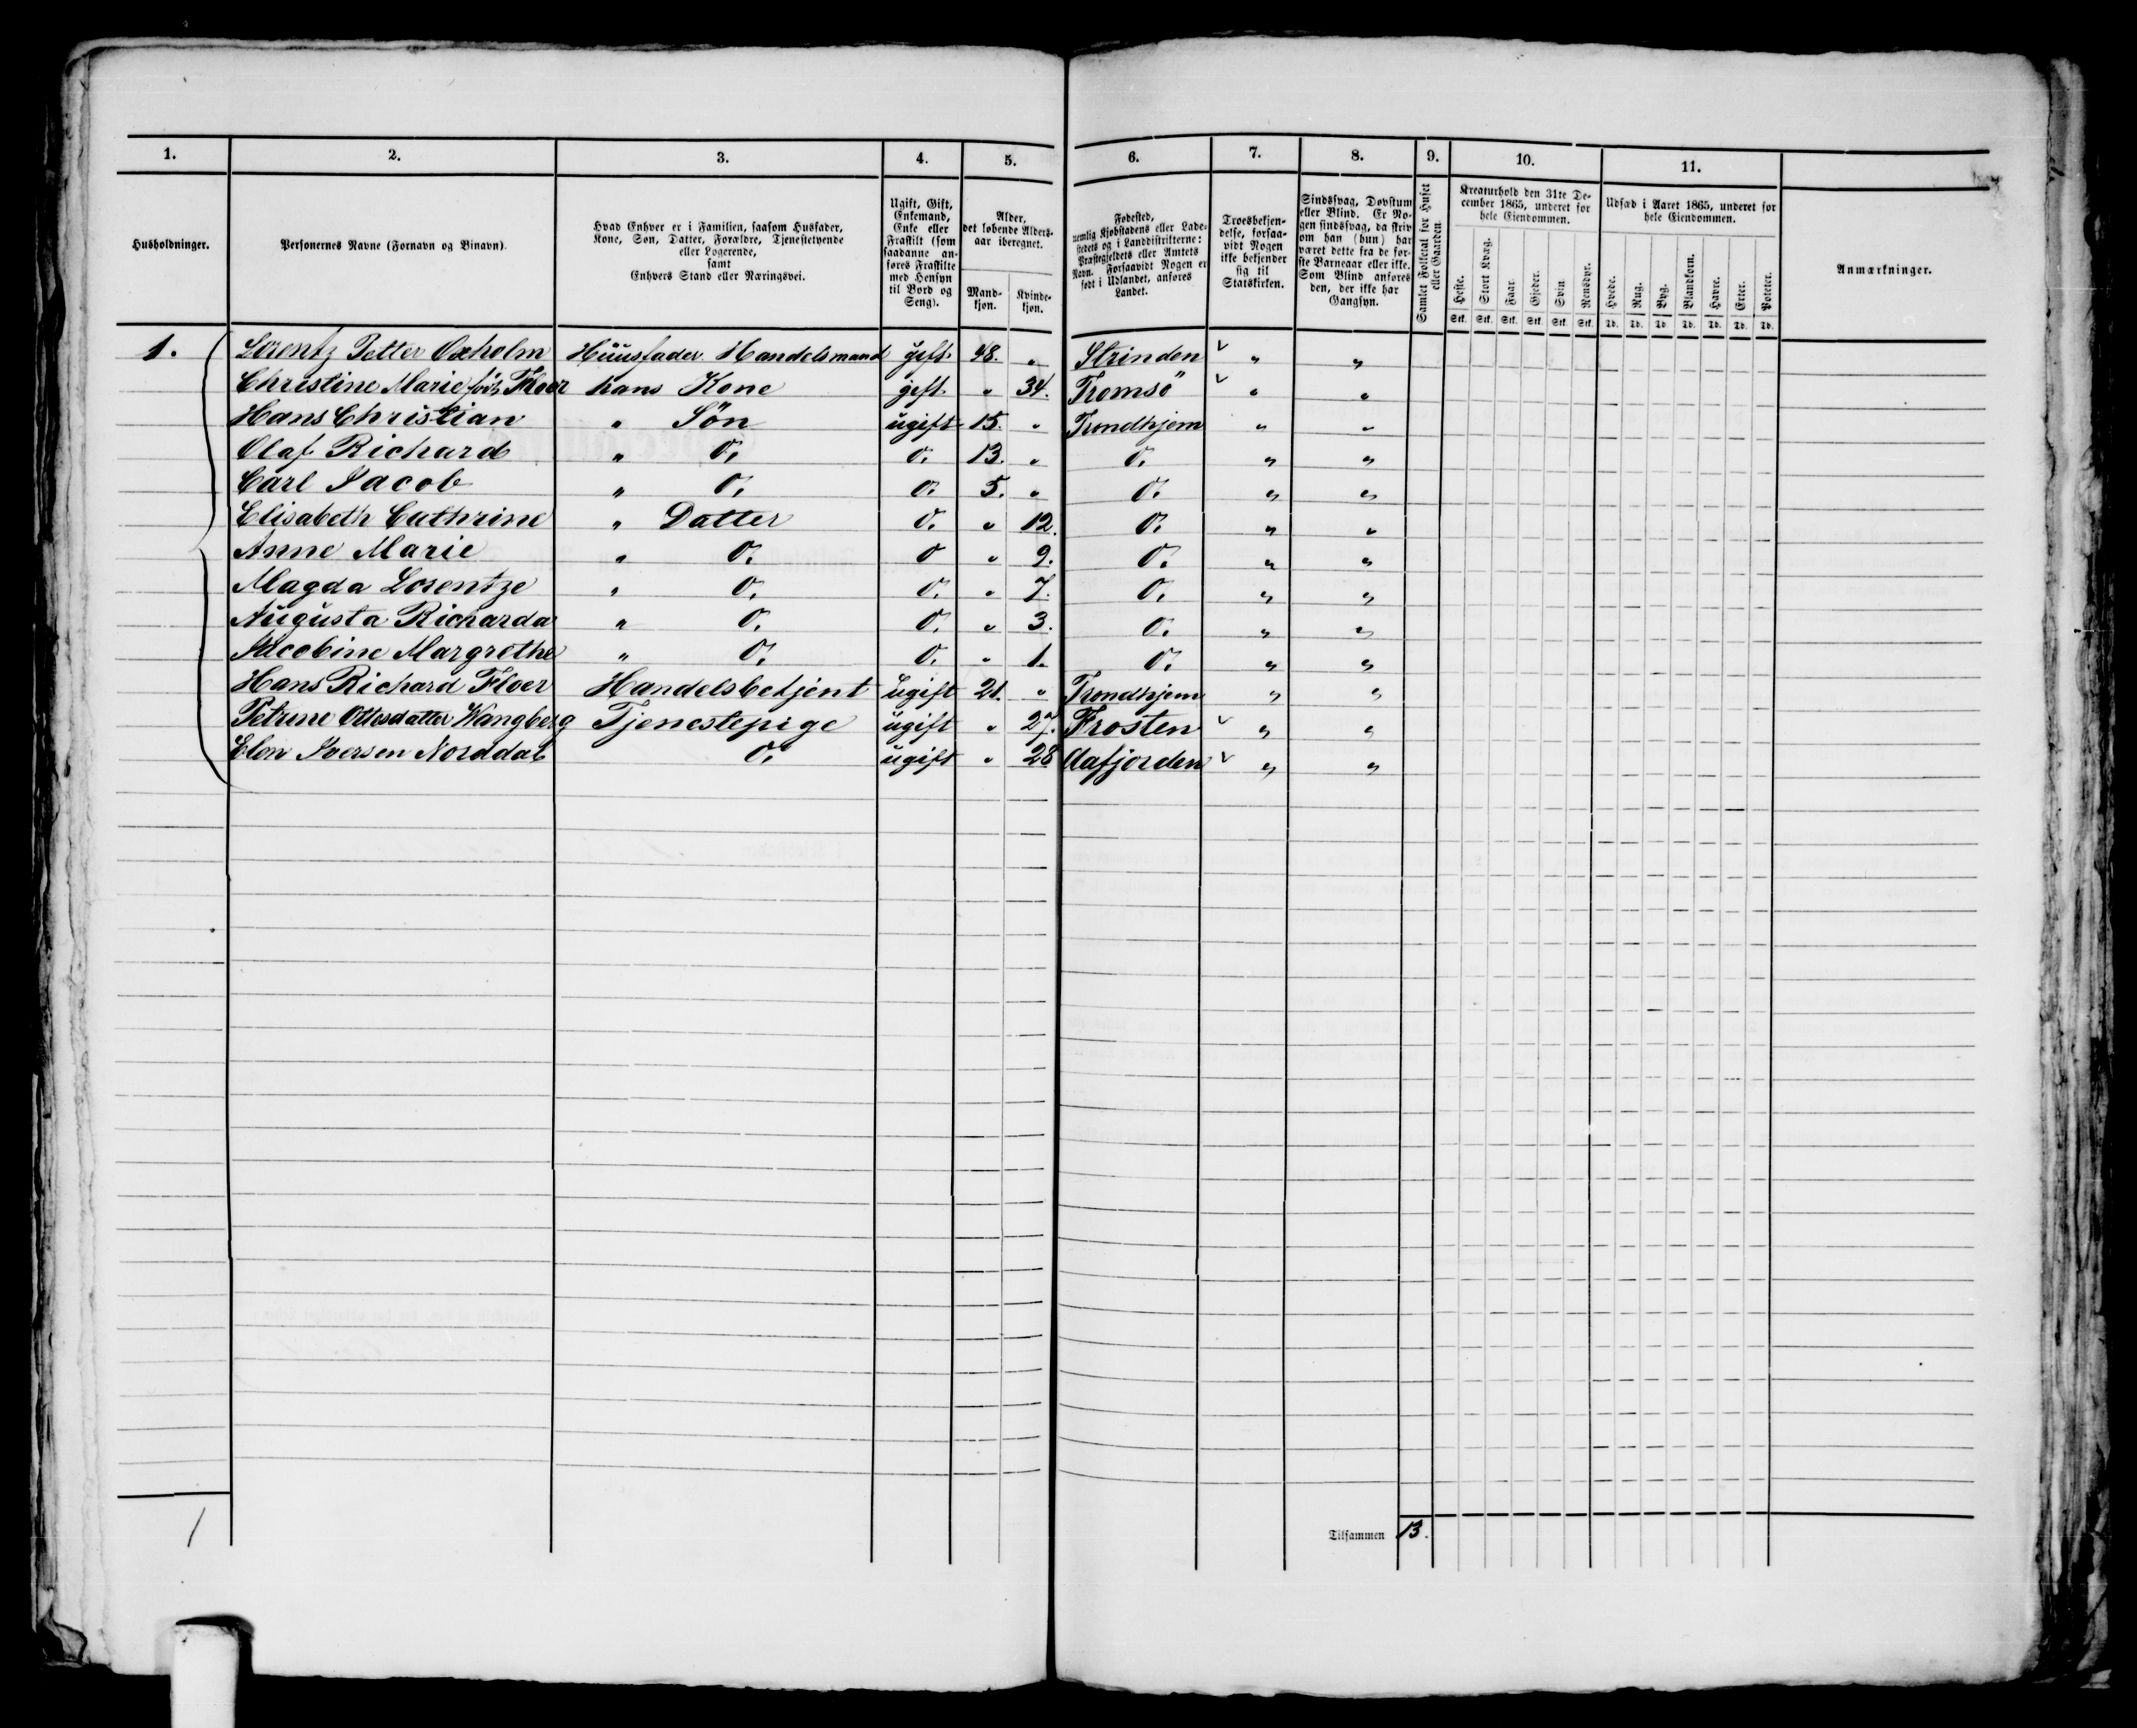 1. 2. 3. 4. 5. 6. 7. 8. 9. 10. 11.
Husholdninger.
Personernes Navne (Fornavn og Binavn).
Hvad Enhver er i Familien, saasom Husfader,
Kone, Søn, Datter, Forældre, Tjenestetyende
eller Logerende,
samt
Enhvers Stand eller Næringsvei.
Ugift, Gift,
Enkemand,
Enke eller
Fraskilt (som
saadanne an-
føres Fraskilte
med Hensyn
til Bord og
Seng).
Alder,
det løbende Alders-
aar iberegnet.
Mand-
kjøn.
Kvinde-
kjøn.
Fødested,
nemlig Kjøbstadens eller Lade-
stedets og i Landdistrikterne:
Præstegjeldets eller Amtets
Navn. Forsaavidt Nogen er
født i Udlandet, anføres
Landet.
Troesbekjen-
delse, forsaa-
vidt Nogen
ikke bekjender
sig til
Statskirken.
Sindssvag, Døvstum
eller Blind. Er No-
gen sindssvag, da skriv
om han (hun) har
været dette fra de før-
ste Barneaar eller ikke.
Som Blind anføres
den, der ikke har
Gangsyn.
Samlet Folketal for Huset
eller Gaarden.
Kreaturhold den 31te De-
cember 1865, underet for
hele Eiendommen.
Heste. Stort Kvæg. Faar. Gjeder. Svin. Rensdyr.
Stk. Stk. Stk. Stk. Stk. Stk.
Udsæd i Aaret 1865, underet for
hele Eiendommen.
Hvede. Rug. Byg. Blandkorn. Havre. Erter. Poteter.
Td. Td. Td Td. Td. Td. Td.
Anmærkninger.
1. Lorentz Petter Oxholm Huusfader. Handelsmand gift. 48. " Strinden " "
Christine Marie født Floer hans Kone gift. " 34. Tromsö " "
Hans Christian " Sön ugift 15. " Trondhjem " "
Olaf Richard " O. O. 13. " O. " "
Carl Jacob " O. O. 5. " O. " "
Elisabeth Cathrine " Datter O. " 12. O. " "
Anne Marie " O. O " 9. O. " "
Magda Lorentze " O. O. " 7. O. " "
Augusta Richarda " O. O. " 3. O. " "
Jacobine Margrethe " O. O. " 1. O. " "
Hans Richard Floer Handelsbetjent ugift 21. " Trondhjem " "
Petrine Ottesdatter Wangberg Tjenestepige ugift " 27. Frosten " "
Elen Iversen Norddal O. ugift " 28 Aafjorden " "
1
Tilsammen 13.